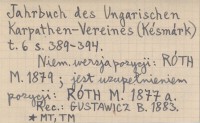 Jahrbuch des Ungarischen
Karpathen-Vereines (Késmárk)
t. 6 s. 389-394.
Niem. wersja pozycji: RÓTH
M. 1879; jest uzupełnieniem
pozycji: RÓTH M. 1877 a.
Rec.: GUSTAWICZ B. 1883.
* MT, TM